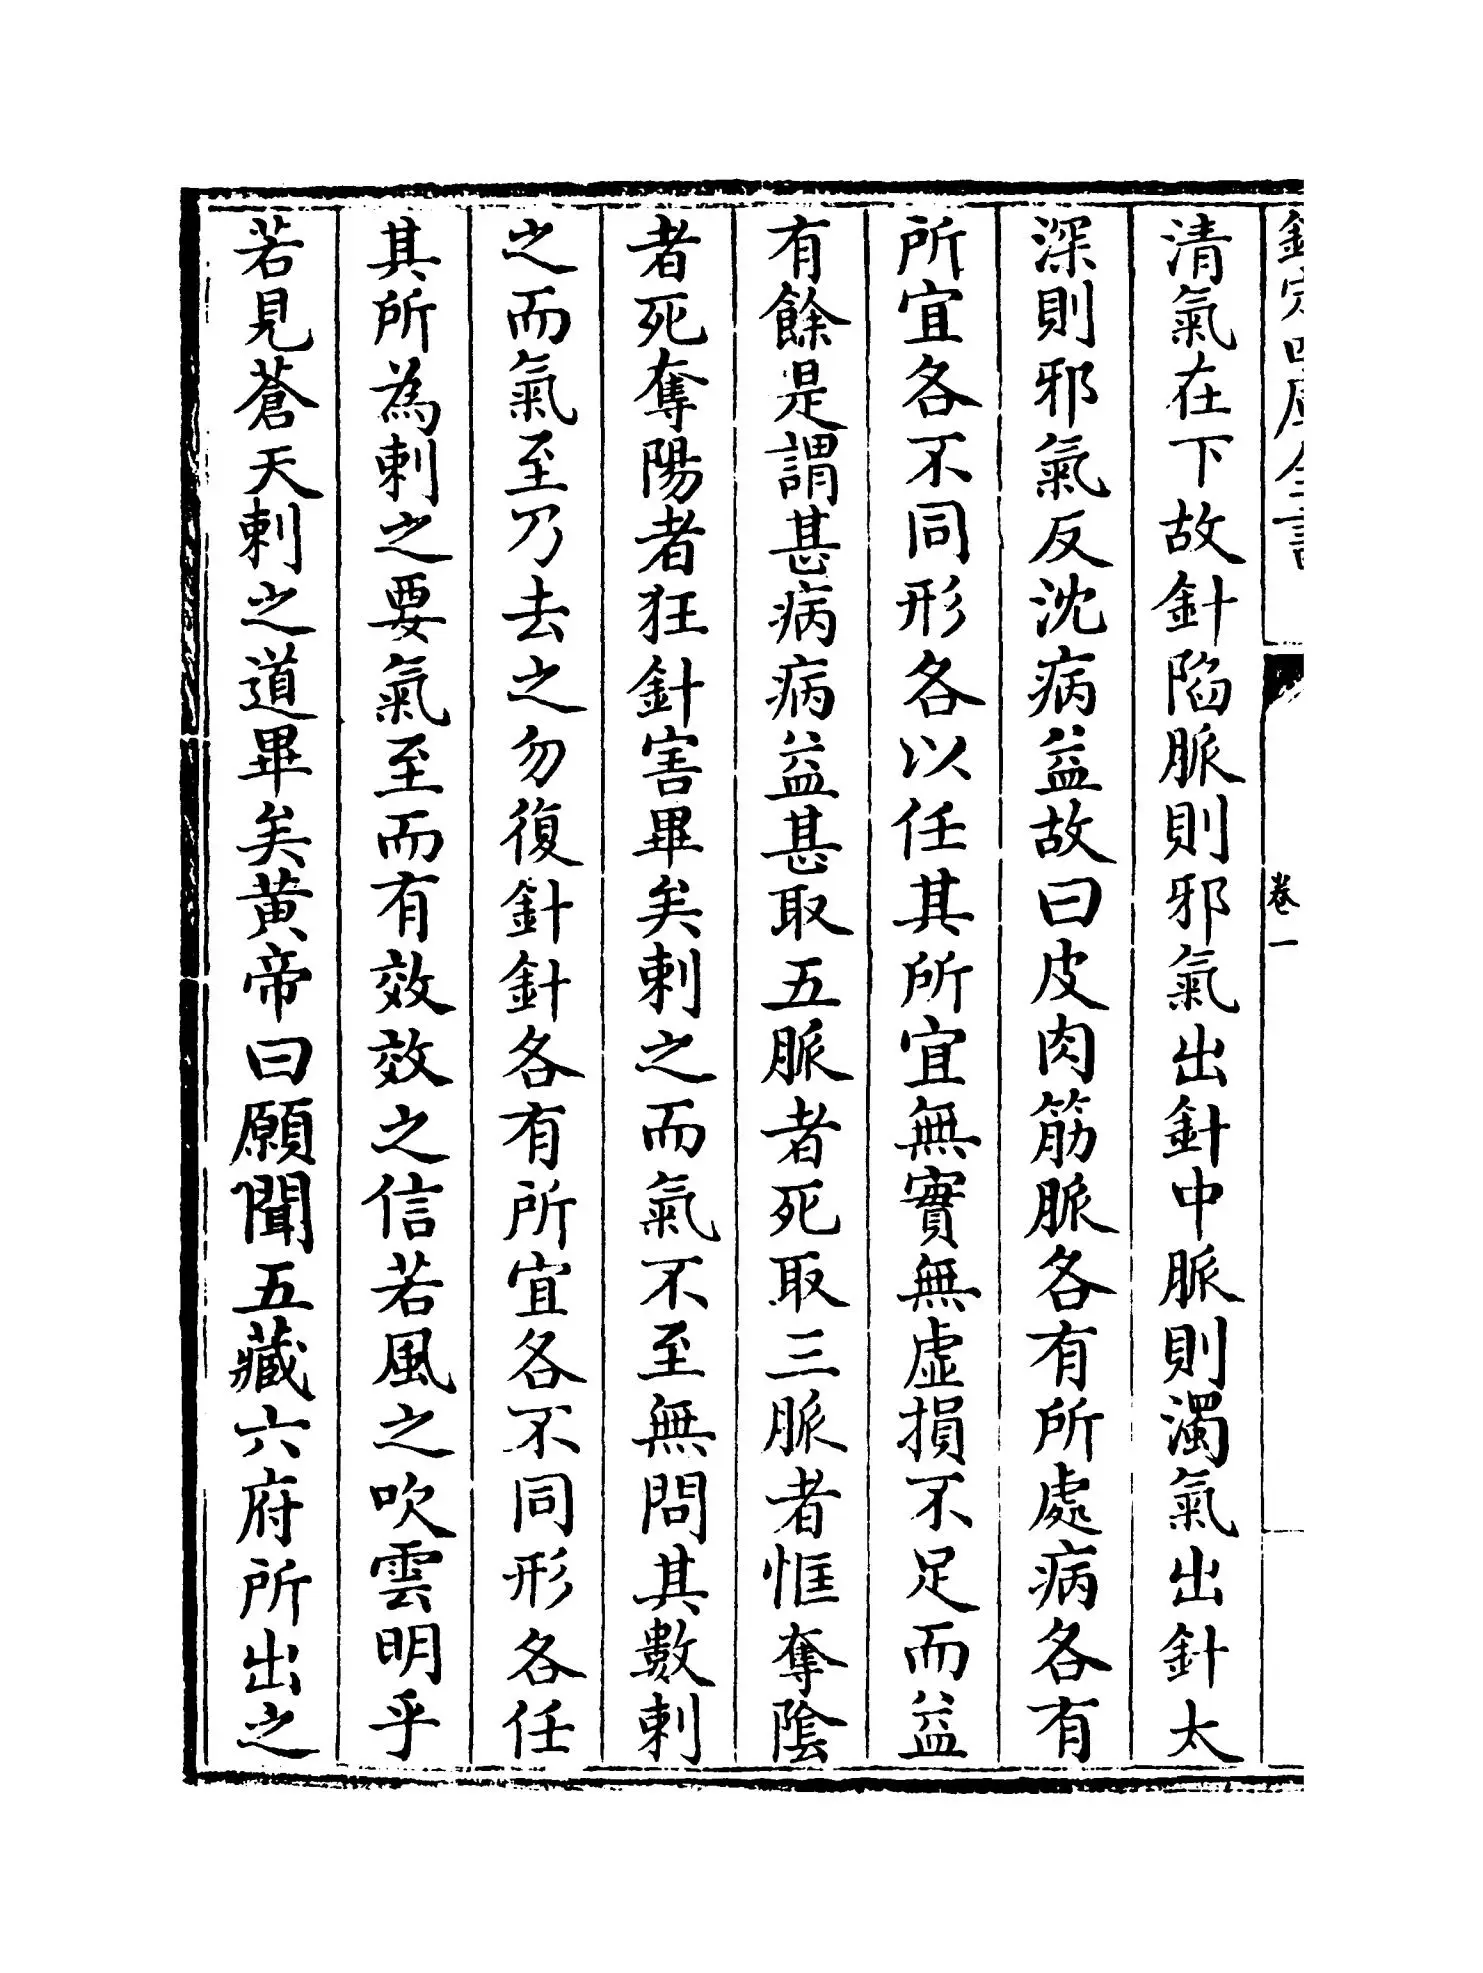 欽定四庫全書
卷一
清氣在下故針陷脈則邪氣出針中脈則濁氣出針太
深則邪氣反沈病益故曰皮肉筋脈各有所處病各有
所宜各不同形各以任其所宜無實無虛損不足而益
有餘是謂甚病病益甚取五脈者死取三脈者恇奪陰
者死奪陽者狂針害畢矣刺之而氣不至無問其數刺
之而氣至乃去之勿復針針各有所宜各不同形各任
其所為刺之要氣至而有效效之信若風之吹雲明乎
若見蒼天刺之道畢矣黃帝曰願聞五藏六府所出之